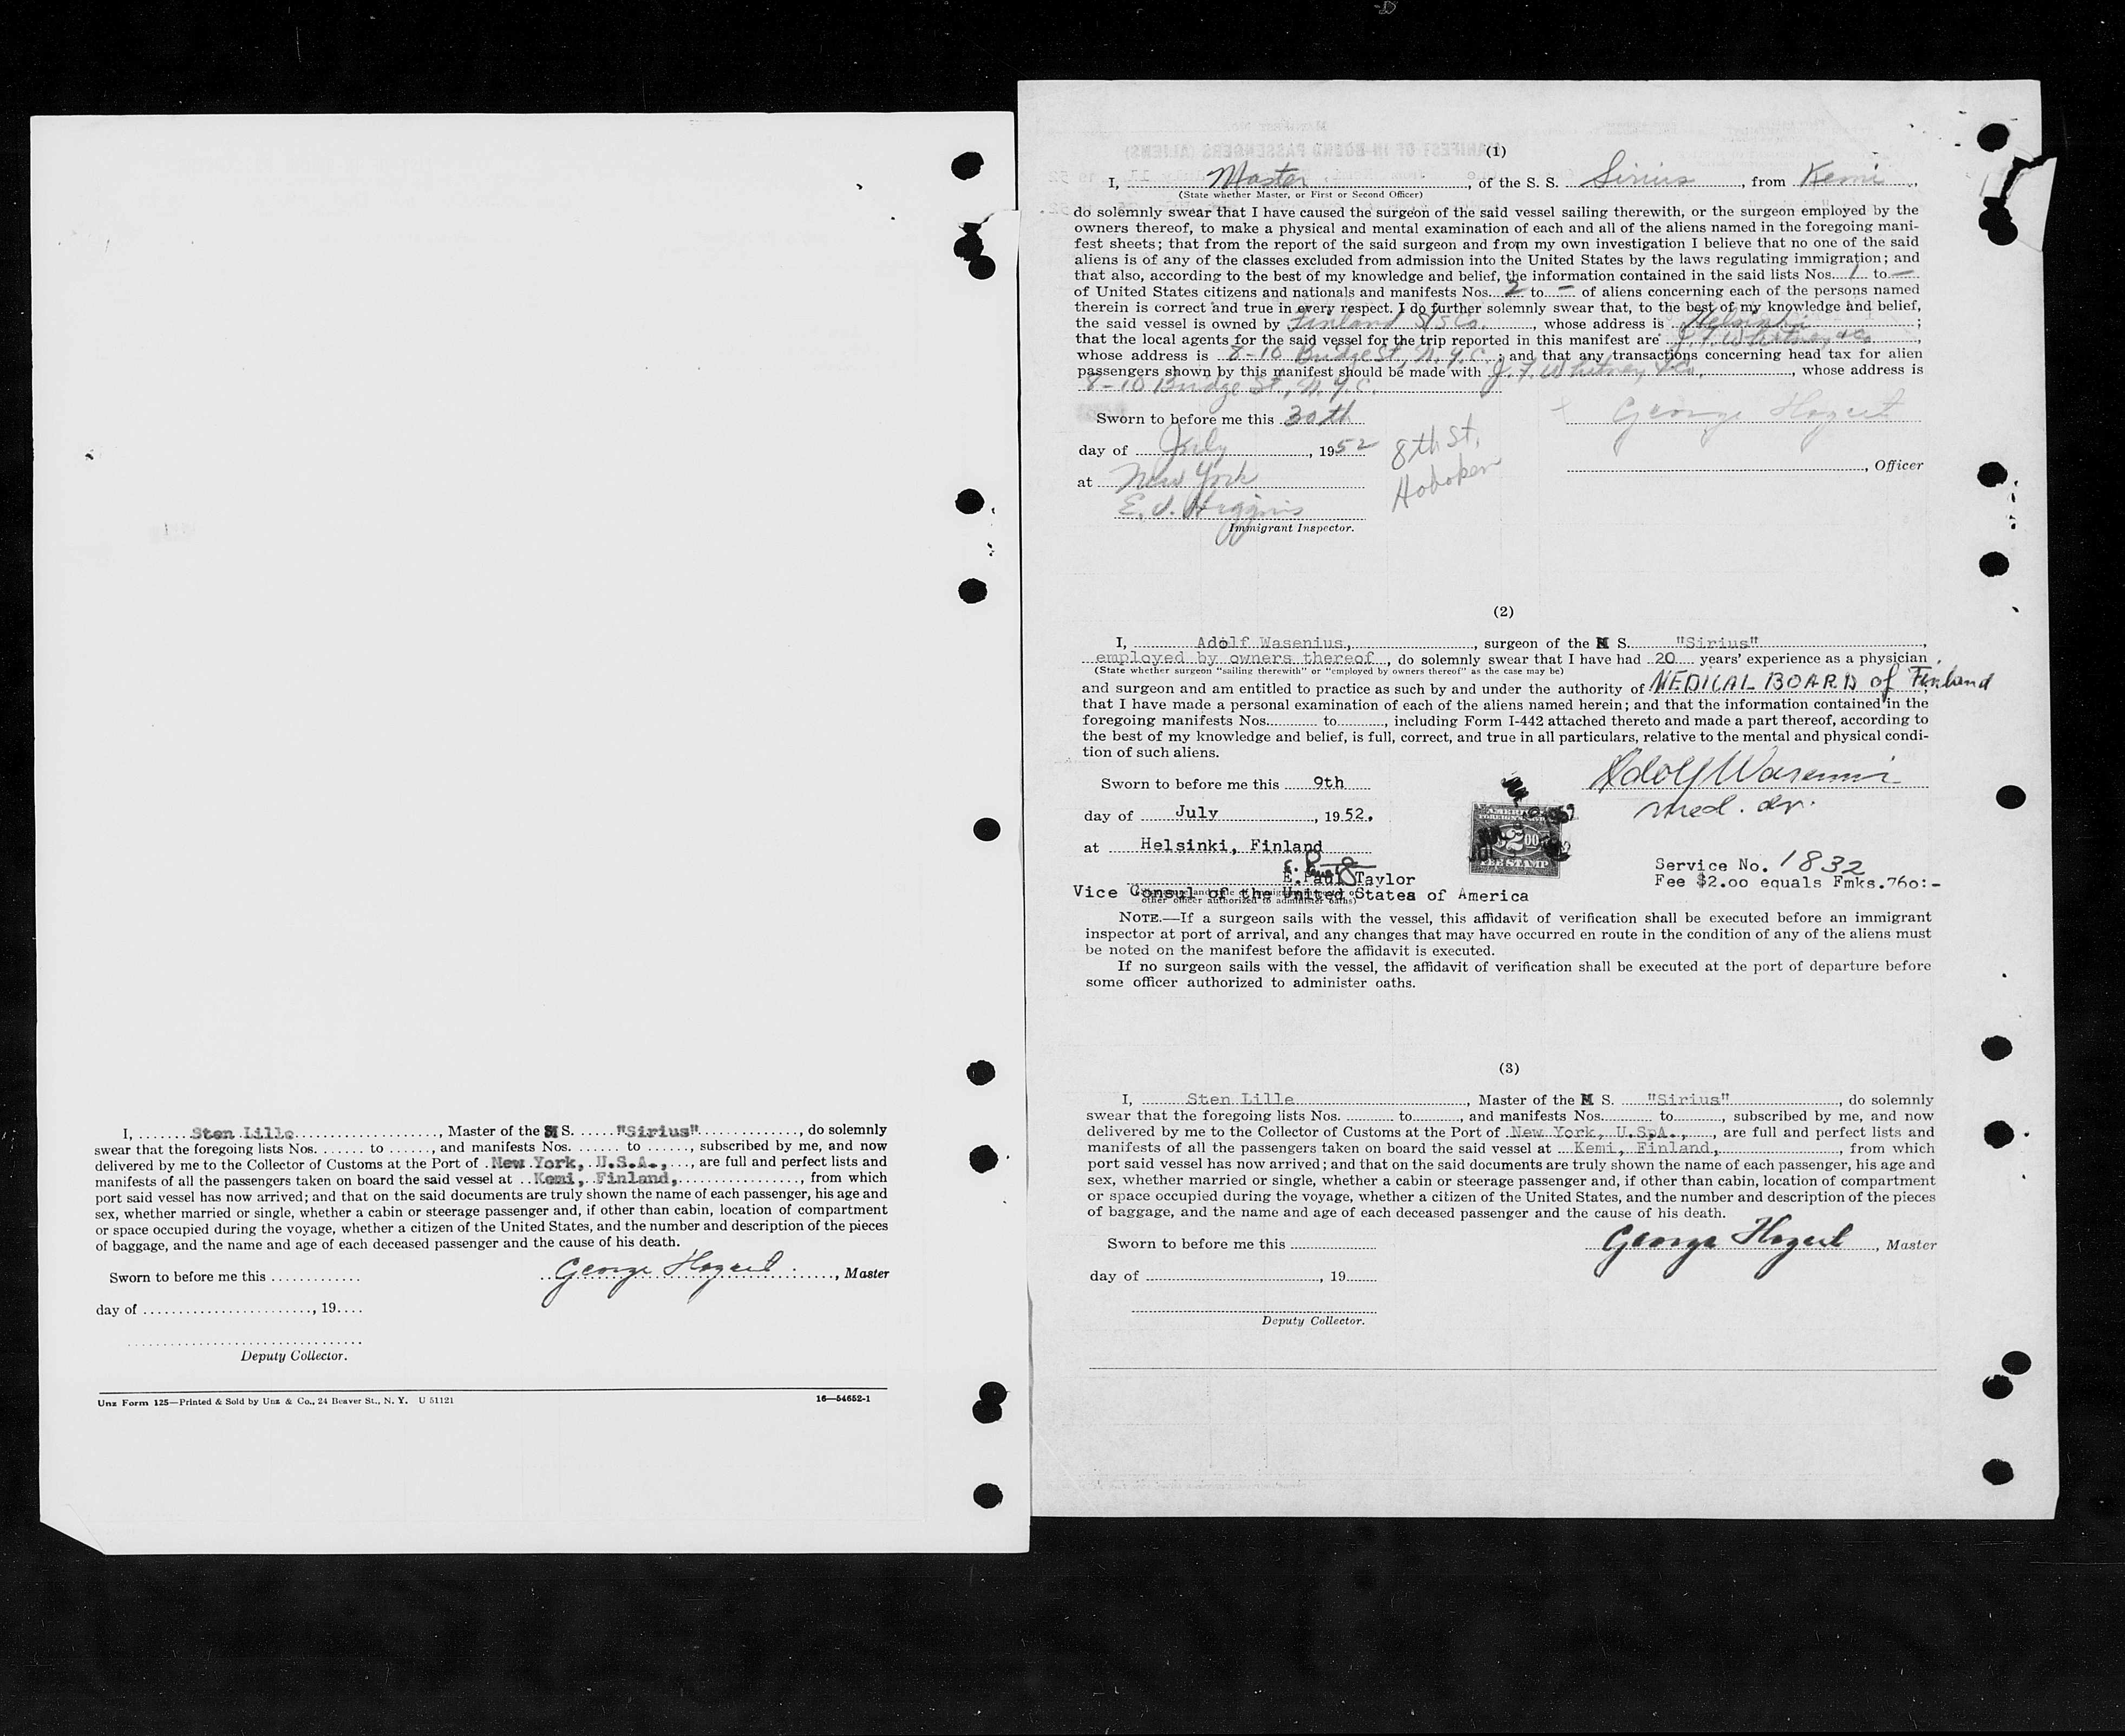 I, ........ Sten Lille ...................., Master of the M S. ...... "Sirius" ............., do solemnly
swear that the foregoing lists Nos. ....... to ......, and manifests Nos. ...... to ......, subscribed by me, and now
delivered by me to the Collector of Customs at the Port of . New York, U.S.A., ...., are full and perfect lists and
manifests of all the passengers taken on board the said vessel at .. Kemi, Finland, ................, from which
port said vessel has now arrived; and that on the said documents are truly shown the name of each passenger, his age and
sex, whether married or single, whether a cabin or steerage passenger and, if other than cabin, location of compartment
or space occupied during the voyage, whether a citizen of the United States, and the number and description of the pieces
of baggage, and the name and age of each deceased passenger and the cause of his death.
Sworn to before me this ............. George Hogeul ......, Master
day of ........................, 19....
Deputy Collector.
Unz Form 125—Printed & Sold by Unz & Co., 24 Beaver St., N. Y. U 51121 16—54652-1
MANIFEST OF IN-BOUND PASSENGERS (ALIENS)
(1)
I, Master, of the S. S. Sirius, from Kemi,
(State whether Master, or First or Second Officer)
do solemnly swear that I have caused the surgeon of the said vessel sailing therewith, or the surgeon employed by the
owners thereof, to make a physical and mental examination of each and all of the aliens named in the foregoing mani-
fest sheets; that from the report of the said surgeon and from my own investigation I believe that no one of the said
aliens is of any of the classes excluded from admission into the United States by the laws regulating immigration; and
that also, according to the best of my knowledge and belief, the information contained in the said lists Nos. 1 to —
of United States citizens and nationals and manifests Nos. 2 to — of aliens concerning each of the persons named
therein is correct and true in every respect. I do further solemnly swear that, to the best of my knowledge and belief,
the said vessel is owned by Finland S/S Co., whose address is Helsinki;
that the local agents for the said vessel for the trip reported in this manifest are J. F. Whitney & Co,
whose address is 8-10 Bridge St, N.Y.C.; and that any transactions concerning head tax for alien
passengers shown by this manifest should be made with J. F. Whitney & Co., whose address is
8-10 Bridge St, N.Y.C.
Sworn to before me this 30th George Hogeul
day of July, 1952 8th St,
Hoboken
, Officer
at New York
E. J. Higgins
Immigrant Inspector.
(2)
I, Adolf Wasenius, surgeon of the M S. "Sirius",
employed by owners thereof, do solemnly swear that I have had 20 years' experience as a physician
(State whether surgeon "sailing therewith" or "employed by owners thereof" as the case may be)
and surgeon and am entitled to practice as such by and under the authority of MEDICAL BOARD of Finland
that I have made a personal examination of each of the aliens named herein; and that the information contained in the
foregoing manifests Nos. to, including Form I-442 attached thereto and made a part thereof, according to
the best of my knowledge and belief, is full, correct, and true in all particulars, relative to the mental and physical condi-
tion of such aliens.
Sworn to before me this 9th Adolf Wasenius
med. dr.
day of July, 1952.
AMERICAN
FOREIGN SERVICE
$2.00
FEE STAMP
at Helsinki, Finland
Service No. 1832
Fee $2.00 equals Fmks.760:-
E. Paul Taylor
Vice Consul of the United States of America
other officer authorized to administer oaths)
NOTE.—If a surgeon sails with the vessel, this affidavit of verification shall be executed before an immigrant
inspector at port of arrival, and any changes that may have occurred en route in the condition of any of the aliens must
be noted on the manifest before the affidavit is executed.
If no surgeon sails with the vessel, the affidavit of verification shall be executed at the port of departure before
some officer authorized to administer oaths.
(3)
I, Sten Lille, Master of the M S. "Sirius", do solemnly
swear that the foregoing lists Nos. to, and manifests Nos. to, subscribed by me, and now
delivered by me to the Collector of Customs at the Port of New York, U.S.A., are full and perfect lists and
manifests of all the passengers taken on board the said vessel at Kemi, Finland,, from which
port said vessel has now arrived; and that on the said documents are truly shown the name of each passenger, his age and
sex, whether married or single, whether a cabin or steerage passenger and, if other than cabin, location of compartment
or space occupied during the voyage, whether a citizen of the United States, and the number and description of the pieces
of baggage, and the name and age of each deceased passenger and the cause of his death.
Sworn to before me this George Hogeul, Master
day of, 19
Deputy Collector.